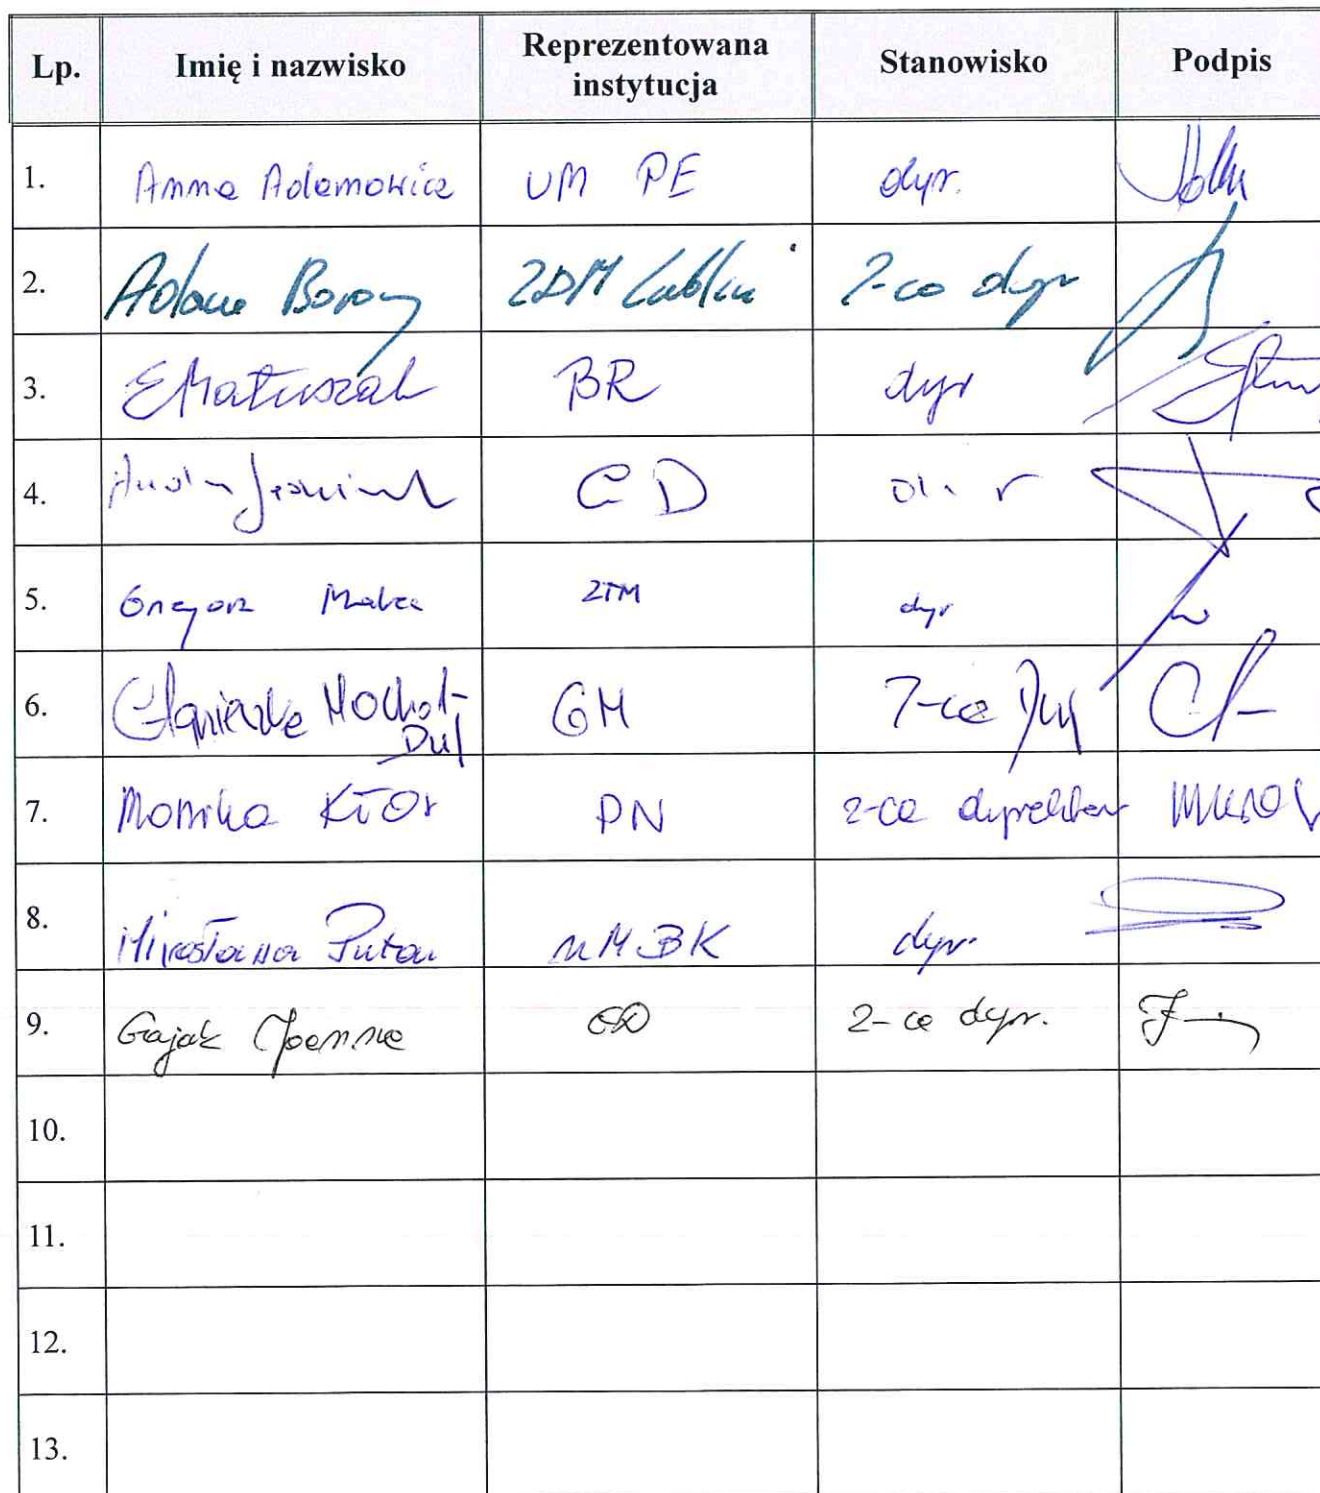 Lp. Imię i nazwisko Reprezentowana instytucja Stanowisko Podpis
1. Anna Adamowicz UM PE dyr.
2. Adam Borowy ZDM Lublin Z-ca dyr
3. E Matuszak BR dyr
4. CD
5. Grzegorz Malec ZTM dyr
6. Agnieszka Mochol- GM Z-ca Dyr
7. Monika Kłos PN z-ca dyrektora
8. Mirosława Puton UM BK dyr.
9. Gajak Joanna z-ca dyr.
10.
11.
12.
13.